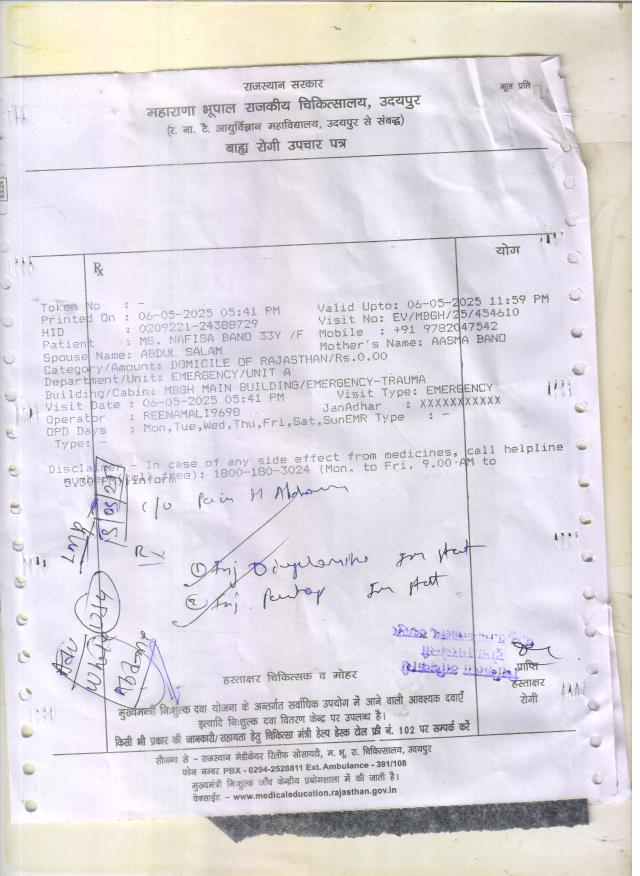 राजस्थान सरकार
मूल प्रति
महाराणा भूपाल राजकीय चिकित्सालय, उदयपुर
(र. ना. टै. आयुर्विज्ञान महाविद्यालय, उदयपुर से संबद्ध)
बाह्य रोगी उपचार पत्र
योग
Rx
Token No : -
Printed On : 06-05-2025 05:41 PM Valid Upto: 06-05-2025 11:59 PM
HID : 0209221-24388729 Visit No: EV/MBGH/25/454610
Patient : MS. NAFISA BANO 33Y /F Mobile : +91 9782047542
Spouse Name: ABDUL SALAM Mother's Name: AASMA BANO
Category/Amount: DOMICILE OF RAJASTHAN/Rs.0.00
Department/Unit: EMERGENCY/UNIT A
Building/Cabin: MBGH MAIN BUILDING/EMERGENCY-TRAUMA
Visit Date : 06-05-2025 05:41 PM Visit Type: EMERGENCY
Operator : REENAMALI9698 JanAdhar : XXXXXXXXXXX
OPD Days : Mon,Tue,Wed,Thu,Fri,Sat,SunEMR Type : -
Type: -
Disclaimer - In case of any side effect from medicines, call helpline
free): 1800-180-3024 (Mon. to Fri. 9.00 AM to
LMP
c/o Pain
R
① Inj Im
② Inj Im
Adv
प्राप्ति
हस्ताक्षर चिकित्सक व मोहर
हस्ताक्षर
रोगी
मुख्यमन्त्री निःशुल्क दवा योजना के अन्तर्गत सर्वाधिक उपयोग में आने वाली आवश्यक दवाएँ
इत्यादि निःशुल्क दवा वितरण केन्द्र पर उपलब्ध है।
किसी भी प्रकार की जानकारी/सहायता हेतु चिकित्सा मंत्री हेल्प डेस्क टोल फ्री नं. 102 पर सम्पर्क करें
सौजन्य से - राजस्थान मेडीकेयर रिलीफ सोसायटी, म. भू. रा. चिकित्सालय, उदयपुर
फोन नम्बर PBX - 0294-2528811 Ext. Ambulance - 391/108
मुख्यमंत्री निःशुल्क जाँच केन्द्रीय प्रयोगशाला में की जाती है।
वेबसाईट - www.medicaleducation.rajasthan.gov.in